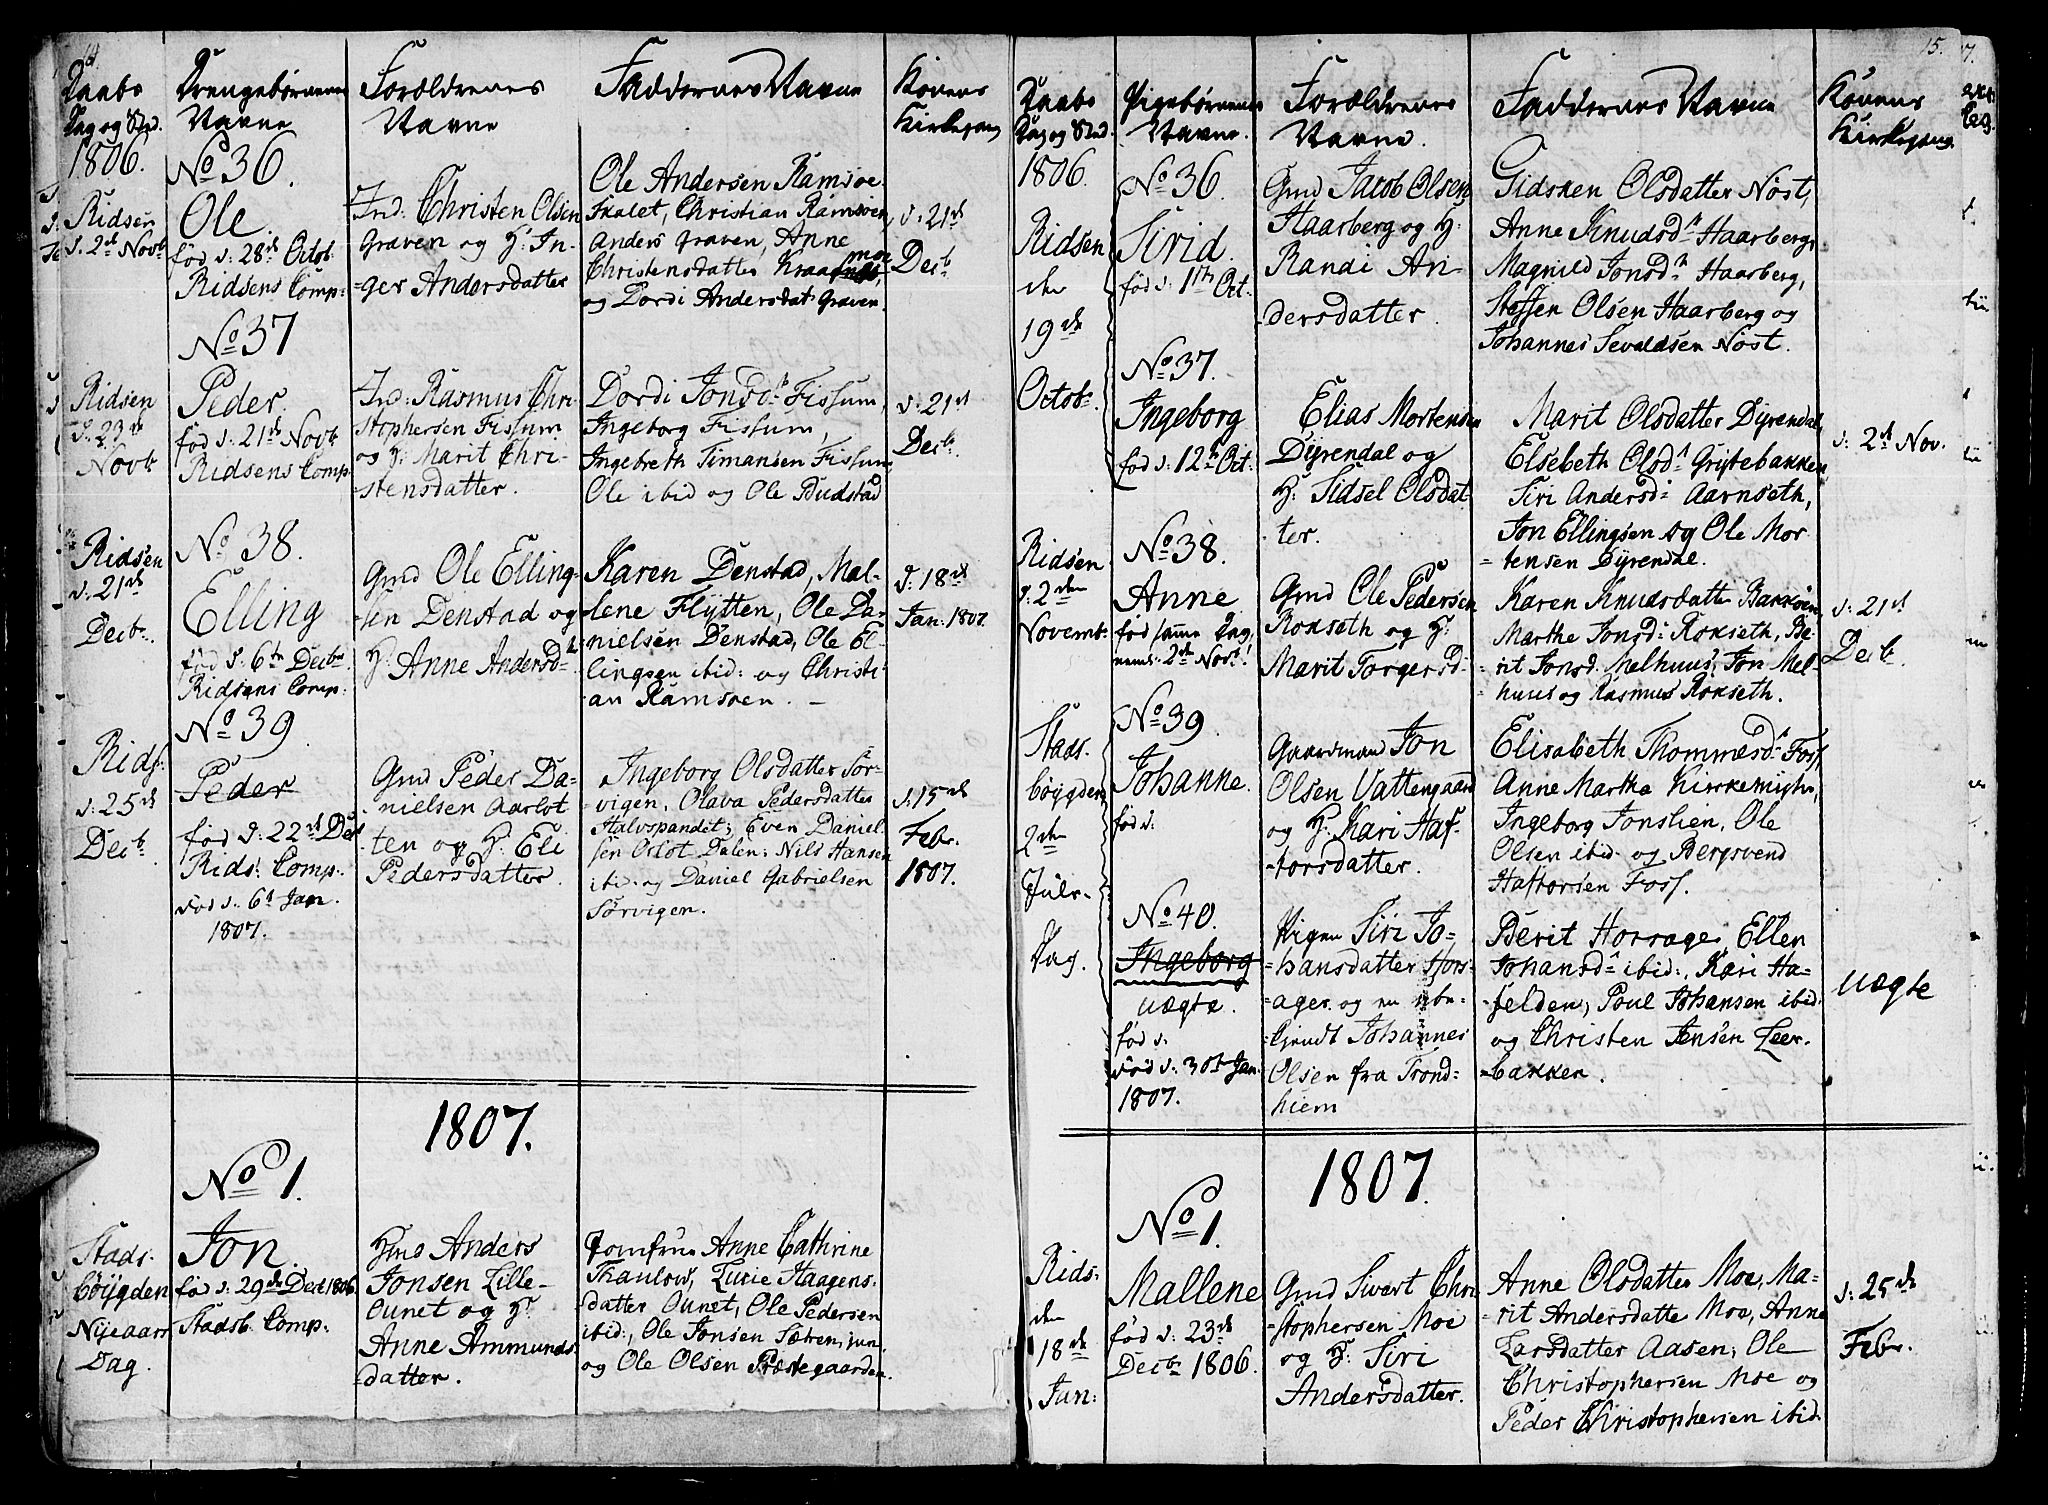 14.
Daabs
Dag og Sted.
Drengebørnenes
Navne
Forældrenes
Navne
Faddernes Navne
Konens
Kirkegang
1806.
Ridsen
d. 2den Novb
No 36.
Ole.
fød d: 28de Octob.
Ridsens Comp:
Ind: Christen Olsen
Graven og H: In-
-ger Andersdatter
Ole Andersen Ramsøe
Christian Ramsøen,
Anders Graven, Anne
Christensdatter
og Dordi Andersdat Graven.
d. 21de
Decb
Ridsen
d. 23de
Novb
No 37
Peder.
fød d: 21de Novb
Ridsens Comp
Ind: Rasmus Chri-
stophersen Fissum
og H: Marit Chri-
-stensdatter.
Dordi Jonsd: Fissum,
Ingeborg Fissum,
Ingebreth Timansen Fissum
Ole ibid og Ole Budstad
d. 21de
Decb.
Ridsen
d. 21de
Decb.
No 38.
Elling
fød d. 6te Decbr
Ridsens Comp:
Gmd Ole Elling-
sen Denstad og
H: Anne Andersd:
Karen Denstad, Mal-
-lene Flÿtten, Ole Da-
-nielsen Denstad, Ole El-
-lingsen ibid: og Christi-
-an Ramsøen. –
d: 18de
Jan: 1807.
Rids:
d. 25de
Decb.
No 39
Peder
fød d: 22de Dec
Rids: Comp:
død d. 6te Jan.
1807.
Gmd Peder Da-
nielsen Aarlot
ten og H: Eli
Pedersdatter.
Ingeborg Olsdatter Sør-
-vigen, Olava Pedersdatter
Halvspandet; Even Daniel-
sen Oslot Dalen: Nils Hansen
ibid: og Daniel Gabrielsen
Sørvigen.
d. 15de
Febr.
1807.
1807.
Stads-
bøÿgden
Nÿeaars
Dag.
No 1.
Jon.
fød d. 29de Decb 1806.
Stadsb: Comp:
Gmd Anders
Jonsen Lille-
Ounet og H:
Anne Ammunds-
datter.
Jomfrue Anne Cathrine
Thaulow, Lucie Haagens-
-datter Ounet, Ole Pedersen
ibid:, Ole Jonsen Sætren, jun
og Ole Olsen Præstegaarden.
15.
Daabs
Dag og Sted.
Pigebørnenes
Navne.
Forældrenes
Navne.
Faddernes Navne
Konens
Kirkegang.
1806.
Ridsen
den
19de
Octob.
No 36.
Sirid.
fød d: 1ste Oct.
Gmd Jacob Olsen
Haarberg og H:
Randi An-
-dersdatter.
Gidsken Olsdatter Nøst,
Anne Knudsd: Haarberg,
Magnild Jonsd: Haarberg,
Steffen Olsen Haarberg og
Johannes Sevaldsen Nøst.
No 37.
Ingeborg
fød d: 12te Oct:
Elias Mortensen
Dÿrendal og
H: Sidsel Olsdat-
-ter.
Marit Olsdatter Dÿrendal,
Elsebeth Olsd: Grÿtebakken
Siri Andersd: Aarnseth,
Jon Ellingsen og Ole Mor
-tensen Dÿrendal.
d: 2de Nov.
Ridsen
d: 2den
Novemb:
No 38.
Anne
fød samme Dag
neml. 2de Nov:
Gmd Ole Pedersen
Rokseth og H:
Marit Torgersd:
Karen Knudsdatter Bakken
Marthe Jonsd: Rokseth, Be-
-rit Jonsd. Melhuus, Jon Mel-
-huus og Rasmus Rokseth.
d: 21de
Decb.
Stads-
bøÿgden
2den
Jule-
Dag.
No 39
Johanne.
fød d:
Gaardmand Jon
Olsen Vattengaard
og H: Kari Haf-
-torsdatter.
Elisabeth Thommesd: Foss
Anne Martha Kirkemÿhr,
Ingeborg Jonslien, Ole
Olsen ibid. og Bergsvend
Haftorsen Foss.
No 40.
Ingeborg
uægte.
fød d:
død d: 30te Jan.
1807.
Pigen Siri Jo-
-hansdatter Hors-
-ager og en ube-
-kjendt Johannes
Olsen fra Trond-
hiem
Berit Horsage, Ellen
Johansd: ibid:, Kari Ha-
-felden, Poul Johansen ibid.
og Christen Jensen Leer-
-bakken.
uægte
1807.
Rids-
den
18de
Jan:
No 1.
Mallene
fød d: 23de
Decbr 1806.
Gmd Sivert Chri
-stophersen Moe
og H: Siri
Andersdatter.
Anne Olsdatter Moe, Ma-
-rit Andersdatte Moe, Anne
Larsdatter Aasen, Ole
Christophersen Moe og
Peder Christophersen ibid.
d: 25de
Febr.